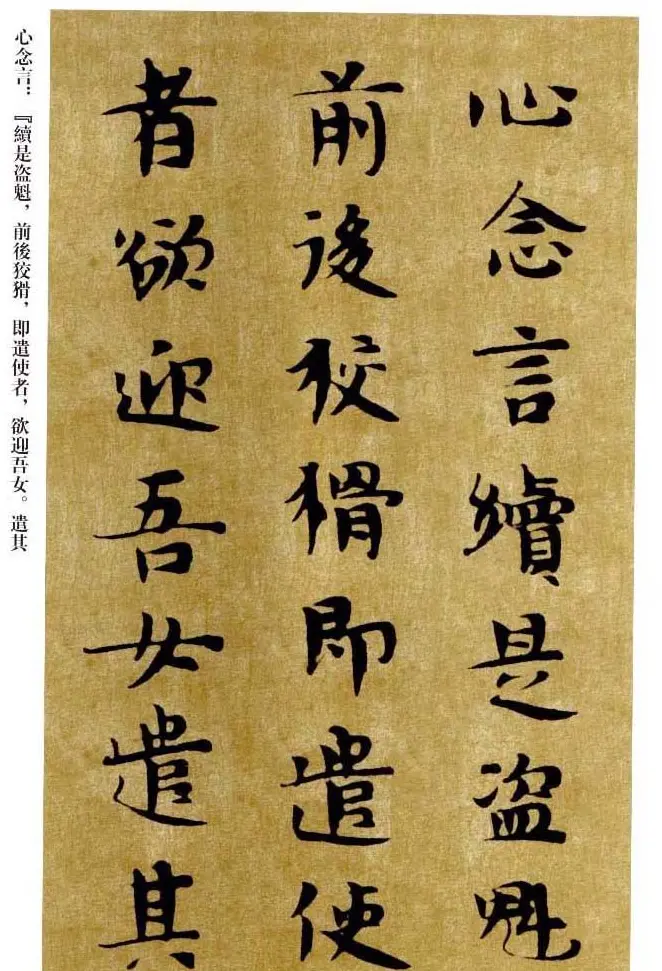 心念言續是盜魁
前後狡猾即遣使
者欲迎吾女遣其
心念言：『續是盜魁，前後狡猾，即遣使者，欲迎吾女。遣其